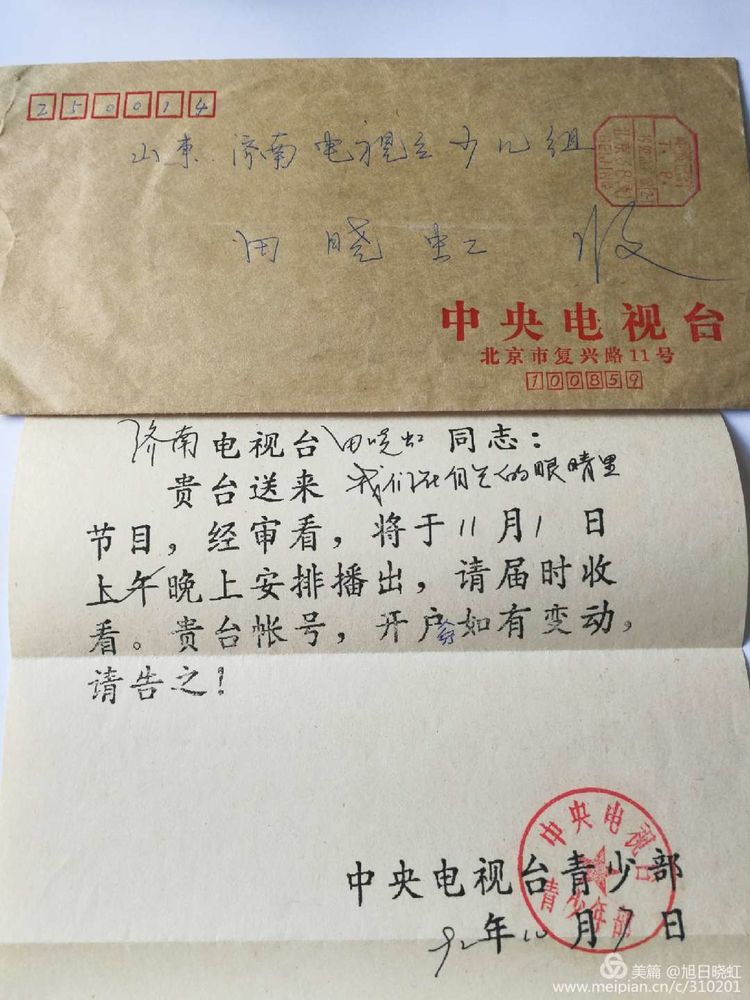 250014
山东 济南电视台少儿组
田晓虹 收
中央电视台
北京市复兴路11号
100859
济南电视台田晓虹同志：
贵台送来 我们在自己的眼睛里
节目，经审看，将于11月1日
上午晚上安排播出，请届时收
看。贵台帐号，开户如有变动，
请告之！
中央电视台
青少年部
中央电视台青少部
92年10月7日
美篇 @旭日晓虹
www.meipian.cn/c/310201